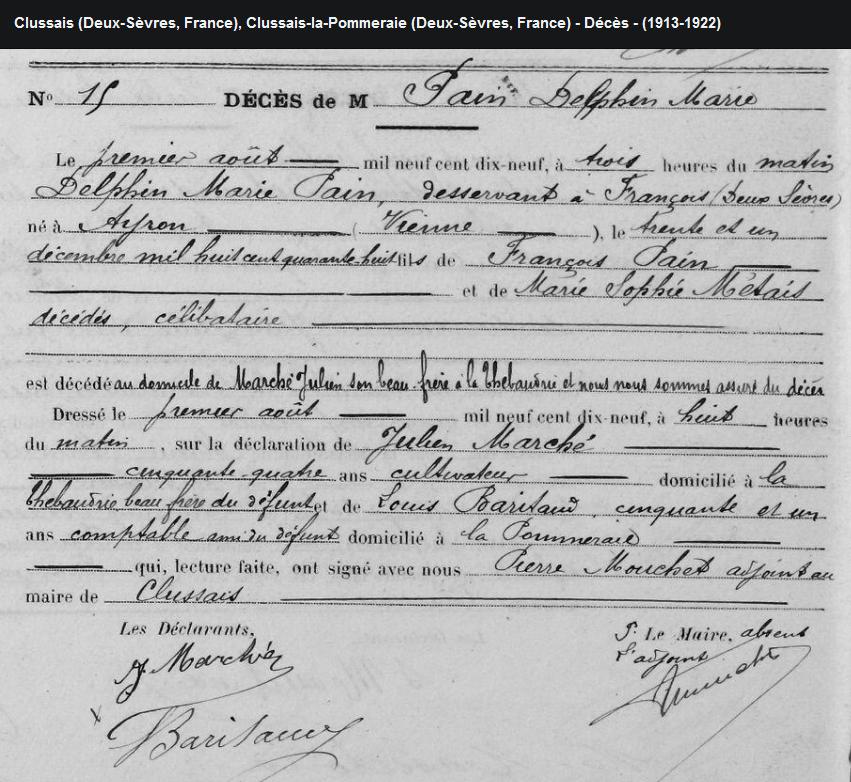 Clussais (Deux-Sèvres, France), Clussais-la-Pommeraie (Deux-Sèvres, France) - Décès - (1913-1922)
No 15 DÉCÈS de M Pain Delphin Marie
Le premier août mil neuf cent dix-neuf, à trois heures du matin
Delphin Marie Pain, desservant à François (Deux Sèvres)
né à Ayron ( Vienne ), le trente et un
décembre mil huit cent quarante-huit fils de François Pain
et de Marie Sophie Métais
décédés, célibataire
est décédé au domicile de Marché Julien son beau-frère à la Thebaudrie et nous nous sommes assuré du décès
Dressé le premier août mil neuf cent dix-neuf, à huit heures
du matin, sur la déclaration de Julien Marché
cinquante-quatre ans cultivateur domicilié à la
Thebaudrie beau frère du défunt et de Louis Baritaud, cinquante et un
ans comptable ami du défunt domicilié à la Pommeraie
qui, lecture faite, ont signé avec nous Pierre Mouchet adjoint au
maire de Clussais
Les Déclarants, P. Le Maire, absent
L'adjoint
J. Marché Mouchet
Baritaud